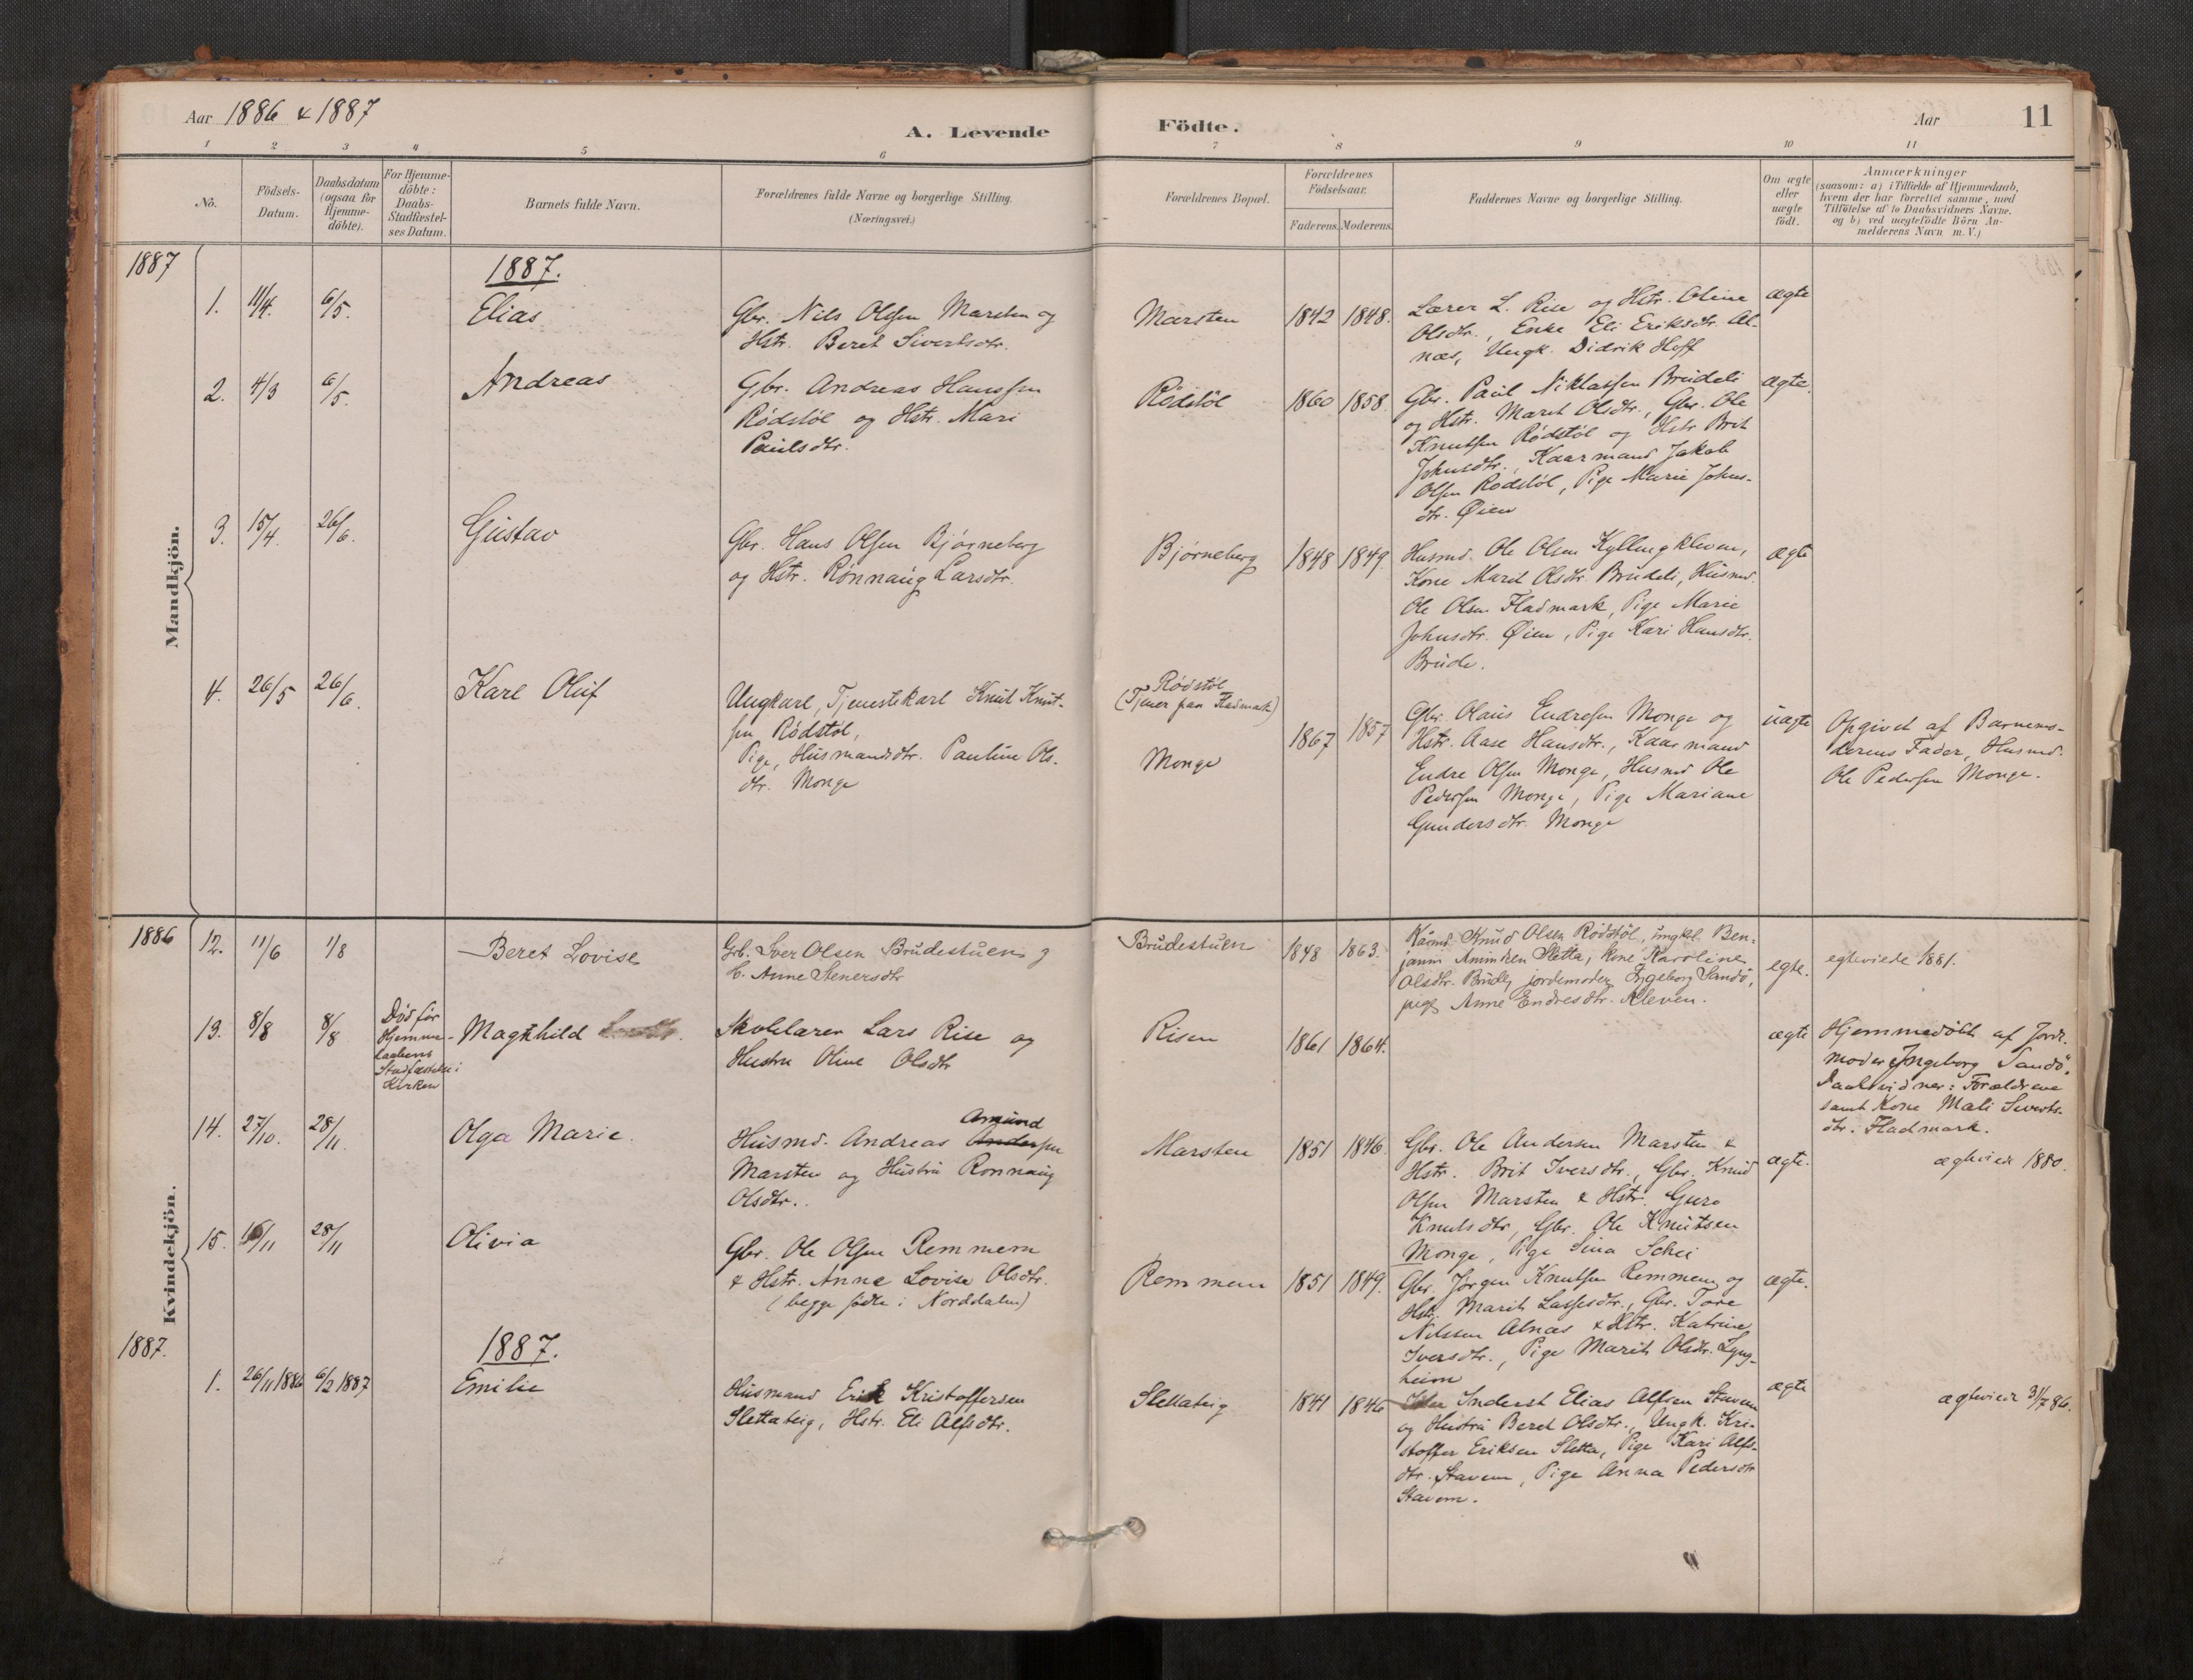 Aar 1886 & 1887
A. Levende
Födte.
Aar
11
1 2 3 4 5 6 7 8 9 10 11
No.
Födsels-
Datum.
Daabsdatum
(ogsaa for
Hjemme-
döbte).
For Hjemme-
döbte:
Daabs-
Stadfæstel-
ses Datum.
Barnets fulde Navn.
Forældrenes fulde Navne og borgerlige Stilling.
(Næringsvei.)
Forældrenes Bopæl.
Forældrenes
Födselsaar.
Faderens. Moderens.
Faddernes Navne og borgerlige Stilling.
Om ægte
eller
uægte
födt.
Anmærkninger
(saasom: a) i Tilfælde af Hjemmedaab,
hvem der har forrettet samme, med
Tilföielse af to Daabsvidners Navne.
og b) ved uægtefödte Börn An-
melderens Navn m. V.)
Mandkjön.
1887
1887.
1. 11/4. 6/5.
Elias
Gbr. Nils Olsen Marsten og
Hstr. Beret Sivertsdtr.
Marsten
1842 1848.
Lærer L. Rise og Hstr. Oline
Olsdtr., Enke Eli Eriksdtr. Al-
næs, Ungk. Didrik Hoff
ægte
2. 4/3 6/5.
Andreas
Gbr. Andreas Hanssen
Rødstøl og Hstr. Mari
Paulsdtr.
Rødstøl
1860 1858.
Gbr. Paul Niklassen Brudeli
og Hstr. Marit Olsdtr., Gbr. Ole
Knutsen Rødstøl og Hstr Brit
Johnsdtr., Kaarmand Jakob
Olsen Rødstøl, Pige Marie Johns-
dtr. Øien
ægte.
3. 15/4. 26/6.
Gustav
Gbr. Hans Olsen Bjørneberg
og Hstr. Rønnaug Larsdtr.
Bjørneberg
1848 1849.
Husmd. Ole Olsen Kyllingkleven,
Kone Marit Olsdtr. Brudeli, Husmd.
Ole Olsen Fladmark, Pige Marie
Johnsdtr. Øien, Pige Kari Hansdtr.
Brude.
ægte
4. 26/5 26/6.
Karl Oluf
Ungkarl, Tjenestekarl Knut Knut-
sen Rødstøl,
Pige, Husmandsdtr. Pauline Ols-
dtr. Monge
Rødstøl
(Tjener paa Fladmark)
Monge
1867 1857
Gbr. Olaus Endresen Monge og
Hstr. Aase Hansdtr., Kaarmand
Endre Olsen Monge, Husmd Ole
Pedersen Monge, Pige Mariane
Gundersdtr. Monge
uægte
Opgivet af Barnemo-
derens Fader, Husmd.
Ole Pedersen Monge.
Kvindekjön.
1886
12. 11/6 1/8
Beret Lovise
Grb. Iver Olsen Brudestuen og
H. Anne Stenersdtr
Brudestuen
1848 1863.
Kårmd. Knud Olsen Rødstöl, ungkl. Ben-
jamin Amundsen Sletta, kone Karoline
Olsdtr. Brude, jordemoder Ingeborg Sandö,
pige Anne Endresdtr. Kleven.
egte.
egteviede 1881.
13. 8/8 8/8
Död för
Hjemme-
daabens
Stadfæstelse i
Kirken
Magthild
Skolelærer Lars Rise og
Hustru Oline Olsdtr
Risen
1861 1864.
ægte
Hjemmedöbt af Jord-
moder Ingeborg Sandö.
Daabsvidner: Forældrene
samt Kone Mali Siverts-
dtr. Fladmark.
14. 27/10. 28/11.
Olga Marie.
Husmd. Andreas Amund
sen
Marsten og Hustru Rönnaug
Olsdtr.
Marsten
1851 1846.
Gbr. Ole Andersen Marsten &
Hstr. Brit Iversdtr., Gbr. Knud
Olsen Marsten & Hstr. Guro
Knutsdtr, Gbr. Ole Knutsen
Monge, Pige Sina Schei
ægte.
ægteviede 1880.
15. /11 28/11
Olivia
Gbr. Ole Olsen Remmem
& Hstr. Anne Lovise Olsdtr.
(begge födte i Norddalen)
Remmem
1851 1849.
Gbr. Jörgen Knutsen Remmem og
Hstr. Marit Lassesdtr., Gbr. Tore
Nilssen Alnæs & Hstr. Katrine
Iversdtr., Pige Marit Olsdtr. Lyng-
heim
ægte.
1887.
1887.
1. 26/11 1886 6/2 1887
Emilie
Husmand Erik Kristoffersen
Slettateig, Hstr. Eli Alfsdtr.
Slettateig
1841 1846
Inderst Elias Alfsen Stavem
og Hustru Beret Olsdtr., Ungk. Kri-
stoffer Eriksen Sletta, Pige Kari Alfs-
dtr. Stavem, Pige Anna Pedersdtr
Stavem.
ægte
ægteviede 31/7 86.